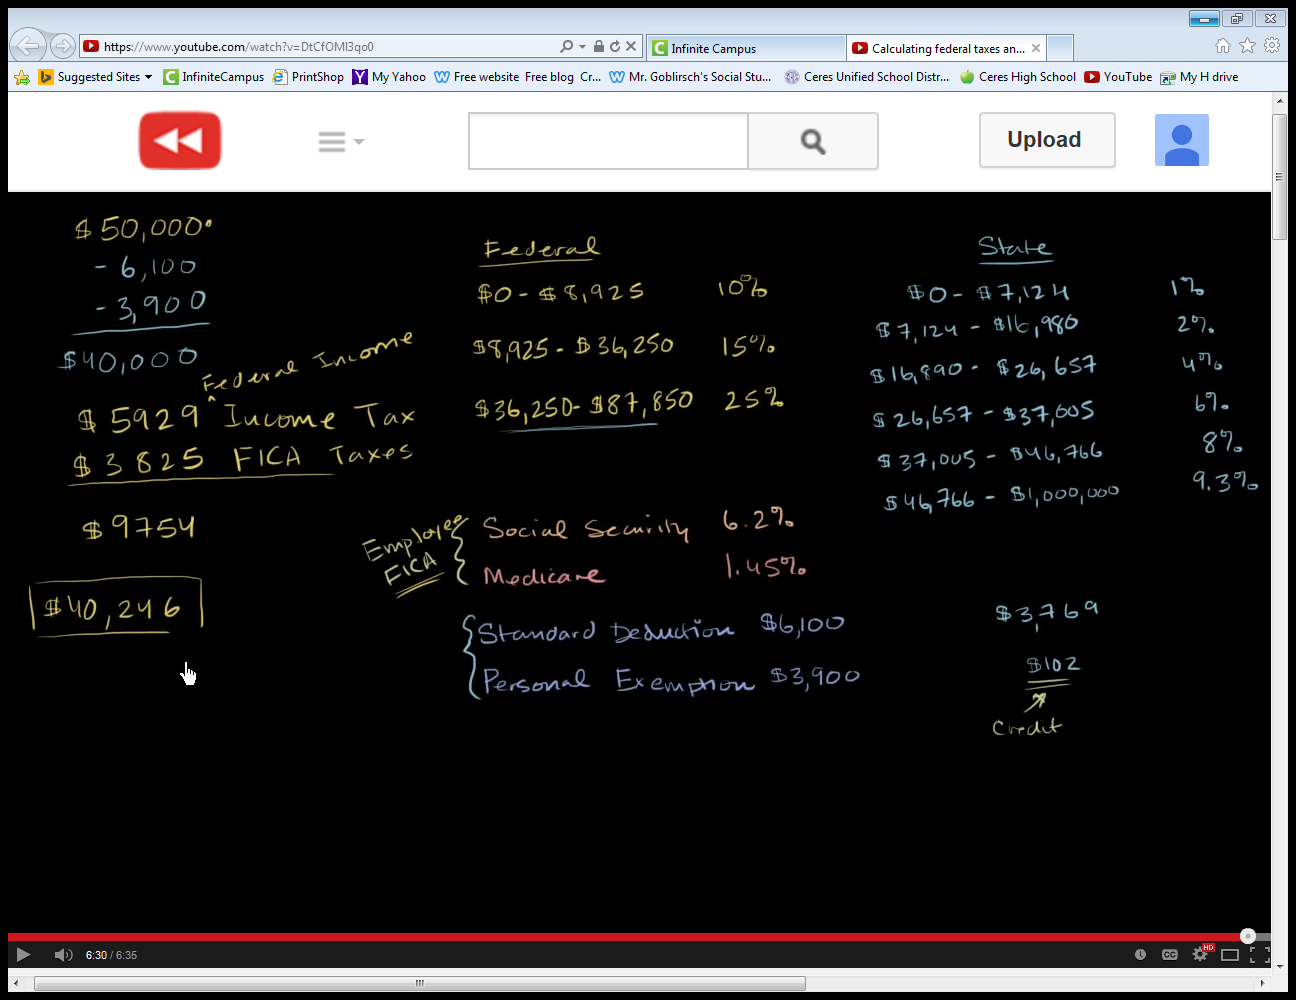 https://www.youtube.com/watch?v=DtCfOMI3qo0
Infinite Campus
Calculating federal taxes an...
Suggested Sites
InfiniteCampus
PrintShop
My Yahoo
Free website Free blog Cr...
Mr. Goblirsch's Social Stu...
Ceres Unified School Distr...
Ceres High School
YouTube
My H drive
Upload
$50,000.
- 6,100
- 3,900
$40,000
Federal Income
$5929 ^ Income Tax
$3825 FICA Taxes
$9754
$40,246
Federal
$0 - $8,925 10%
$8,925 - $36,250 15%
$36,250 - $87,850 25%
Employee
FICA
Social Security 6.2%
Medicare 1.45%
Standard Deduction $6,100
Personal Exemption $3,900
State
$0 - $7,124 1%
$7,124 - $16,980 2%
$16,890 - $26,657 4%
$26,657 - $37,005 6%
$37,005 - $46,766 8%
$46,766 - $1,000,000 9.3%
$3,769
$102
Credit
6:30 / 6:35
CC
HD